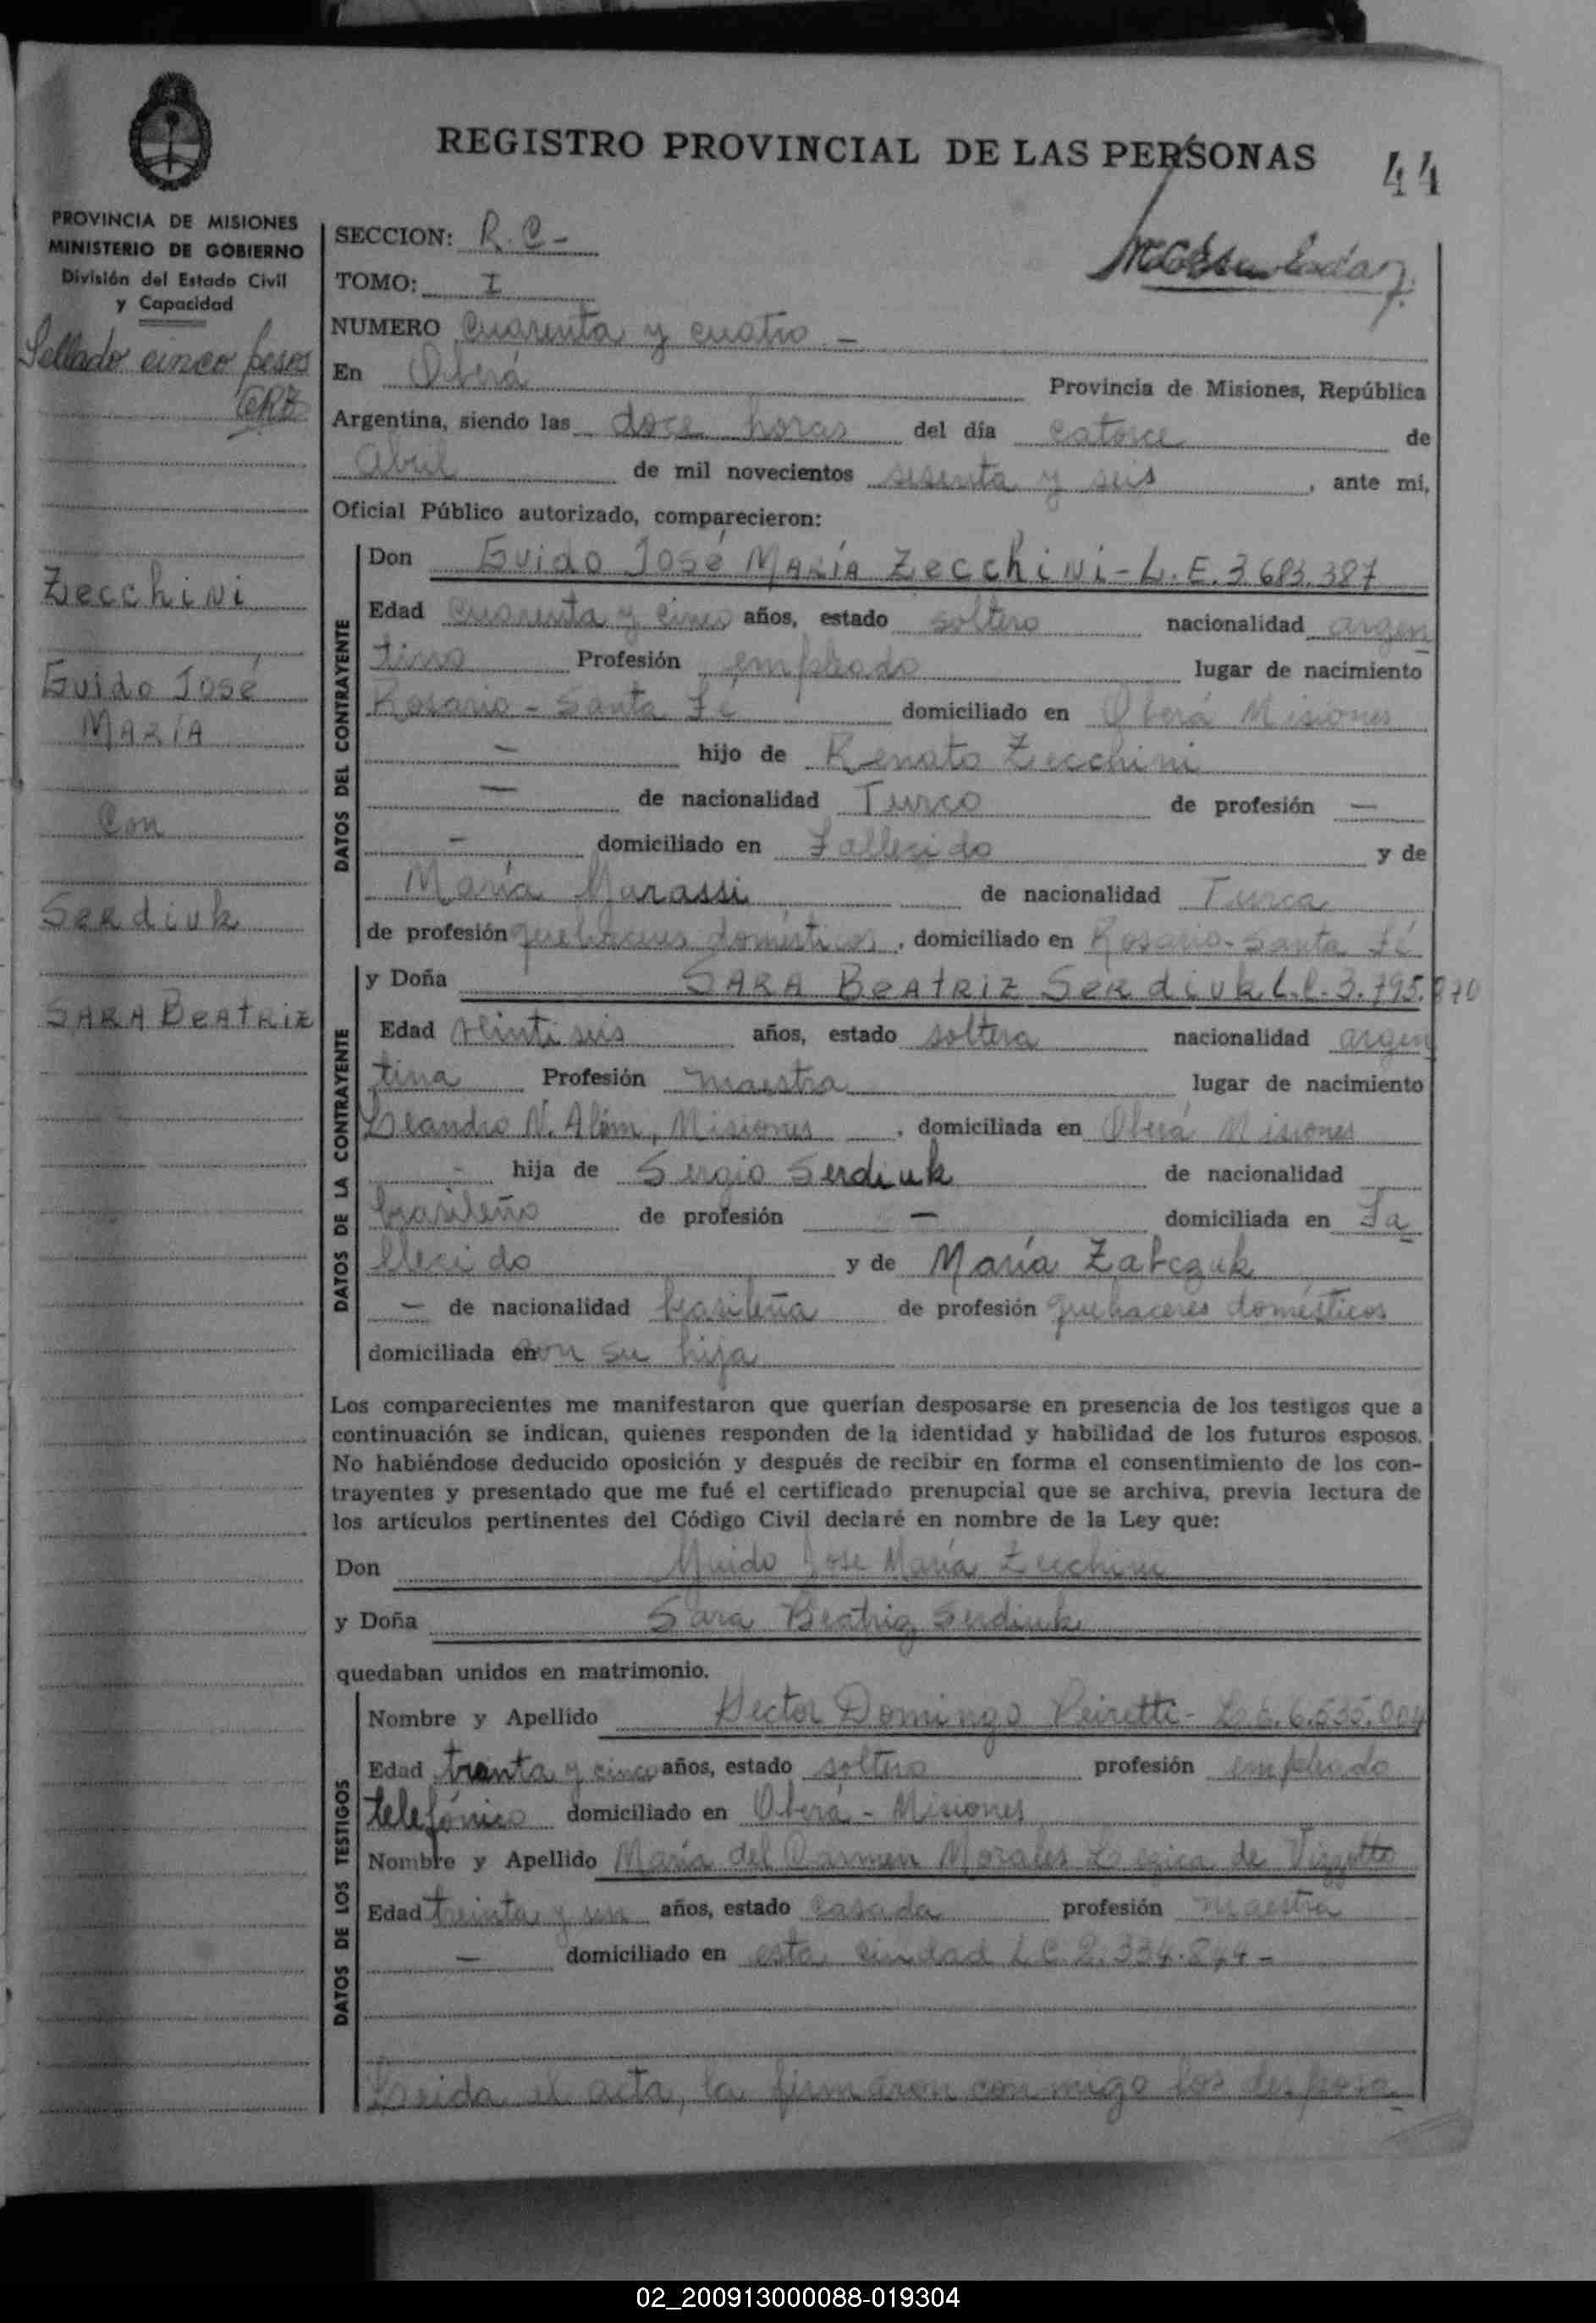 REGISTRO PROVINCIAL DE LAS PERSONAS
44
PROVINCIA DE MISIONES
MINISTERIO DE GOBIERNO
División del Estado Civil
y Capacidad
Sellado cinco pesos
Zecchini
Guido José
MARÍA
Con
Serdiuk
SARA BeAtRiz
SECCION: R.C-
TOMO: I
NUMERO Cuarenta y cuatro -
En Oberá Provincia de Misiones, República
Argentina, siendo las doce horas del día catorce de
abril de mil novecientos sesenta y seis, ante mi,
Oficial Público autorizado, comparecieron:
DATOS DEL CONTRAYENTE
Don Guido José MARÍA Zecchini-L.E.3.683.387
Edad cuarenta y cinco años, estado soltero nacionalidad argen
tino Profesión empleado lugar de nacimiento
Rosario - Santa Fé domiciliado en Oberá Misiones
- hijo de Renato Zecchini
- de nacionalidad Turco de profesión -
- domiciliado en Fallecido y de
María Marassi de nacionalidad Turca
de profesión quehaceres domésticos, domiciliado en Rosario-Santa Fé
DATOS DE LA CONTRAYENTE
y Doña SARA BeAtRiz Serdiuk L.C.3.795.870
Edad veintiseis años, estado soltera nacionalidad argen
tina Profesión maestra lugar de nacimiento
Leandro N. Alem, Misiones, domiciliada en Oberá Misiones
- hija de Sergio Serdiuk de nacionalidad
brasileño de profesión - domiciliada en Fa
llecido y de María Zabczuk
- de nacionalidad brasileña de profesión quehaceres domésticos
domiciliada en con su hija
Los comparecientes me manifestaron que querían desposarse en presencia de los testigos que a
continuación se indican, quienes responden de la identidad y habilidad de los futuros esposos.
No habiéndose deducido oposición y después de recibir en forma el consentimiento de los con-
trayentes y presentado que me fué el certificado prenupcial que se archiva, previa lectura de
los artículos pertinentes del Código Civil declaré en nombre de la Ley que:
Don Guido José María Zecchini
y Doña Sara Beatriz Serdiuk
quedaban unidos en matrimonio.
DATOS DE LOS TESTIGOS
Nombre y Apellido Hector Domingo Peiretti - L.E.6.535.004
Edad treinta y cinco años, estado soltero profesión empleado
telefónico domiciliado en Oberá - Misiones
Nombre y Apellido María del Carmen Morales Legica de Vizzotto
Edad treinta y un años, estado casada profesión maestra
- domiciliado en esta ciudad L.C.2.334.844-
Leida el acta, la firmaron conmigo los desposa
02_200913000088-019304